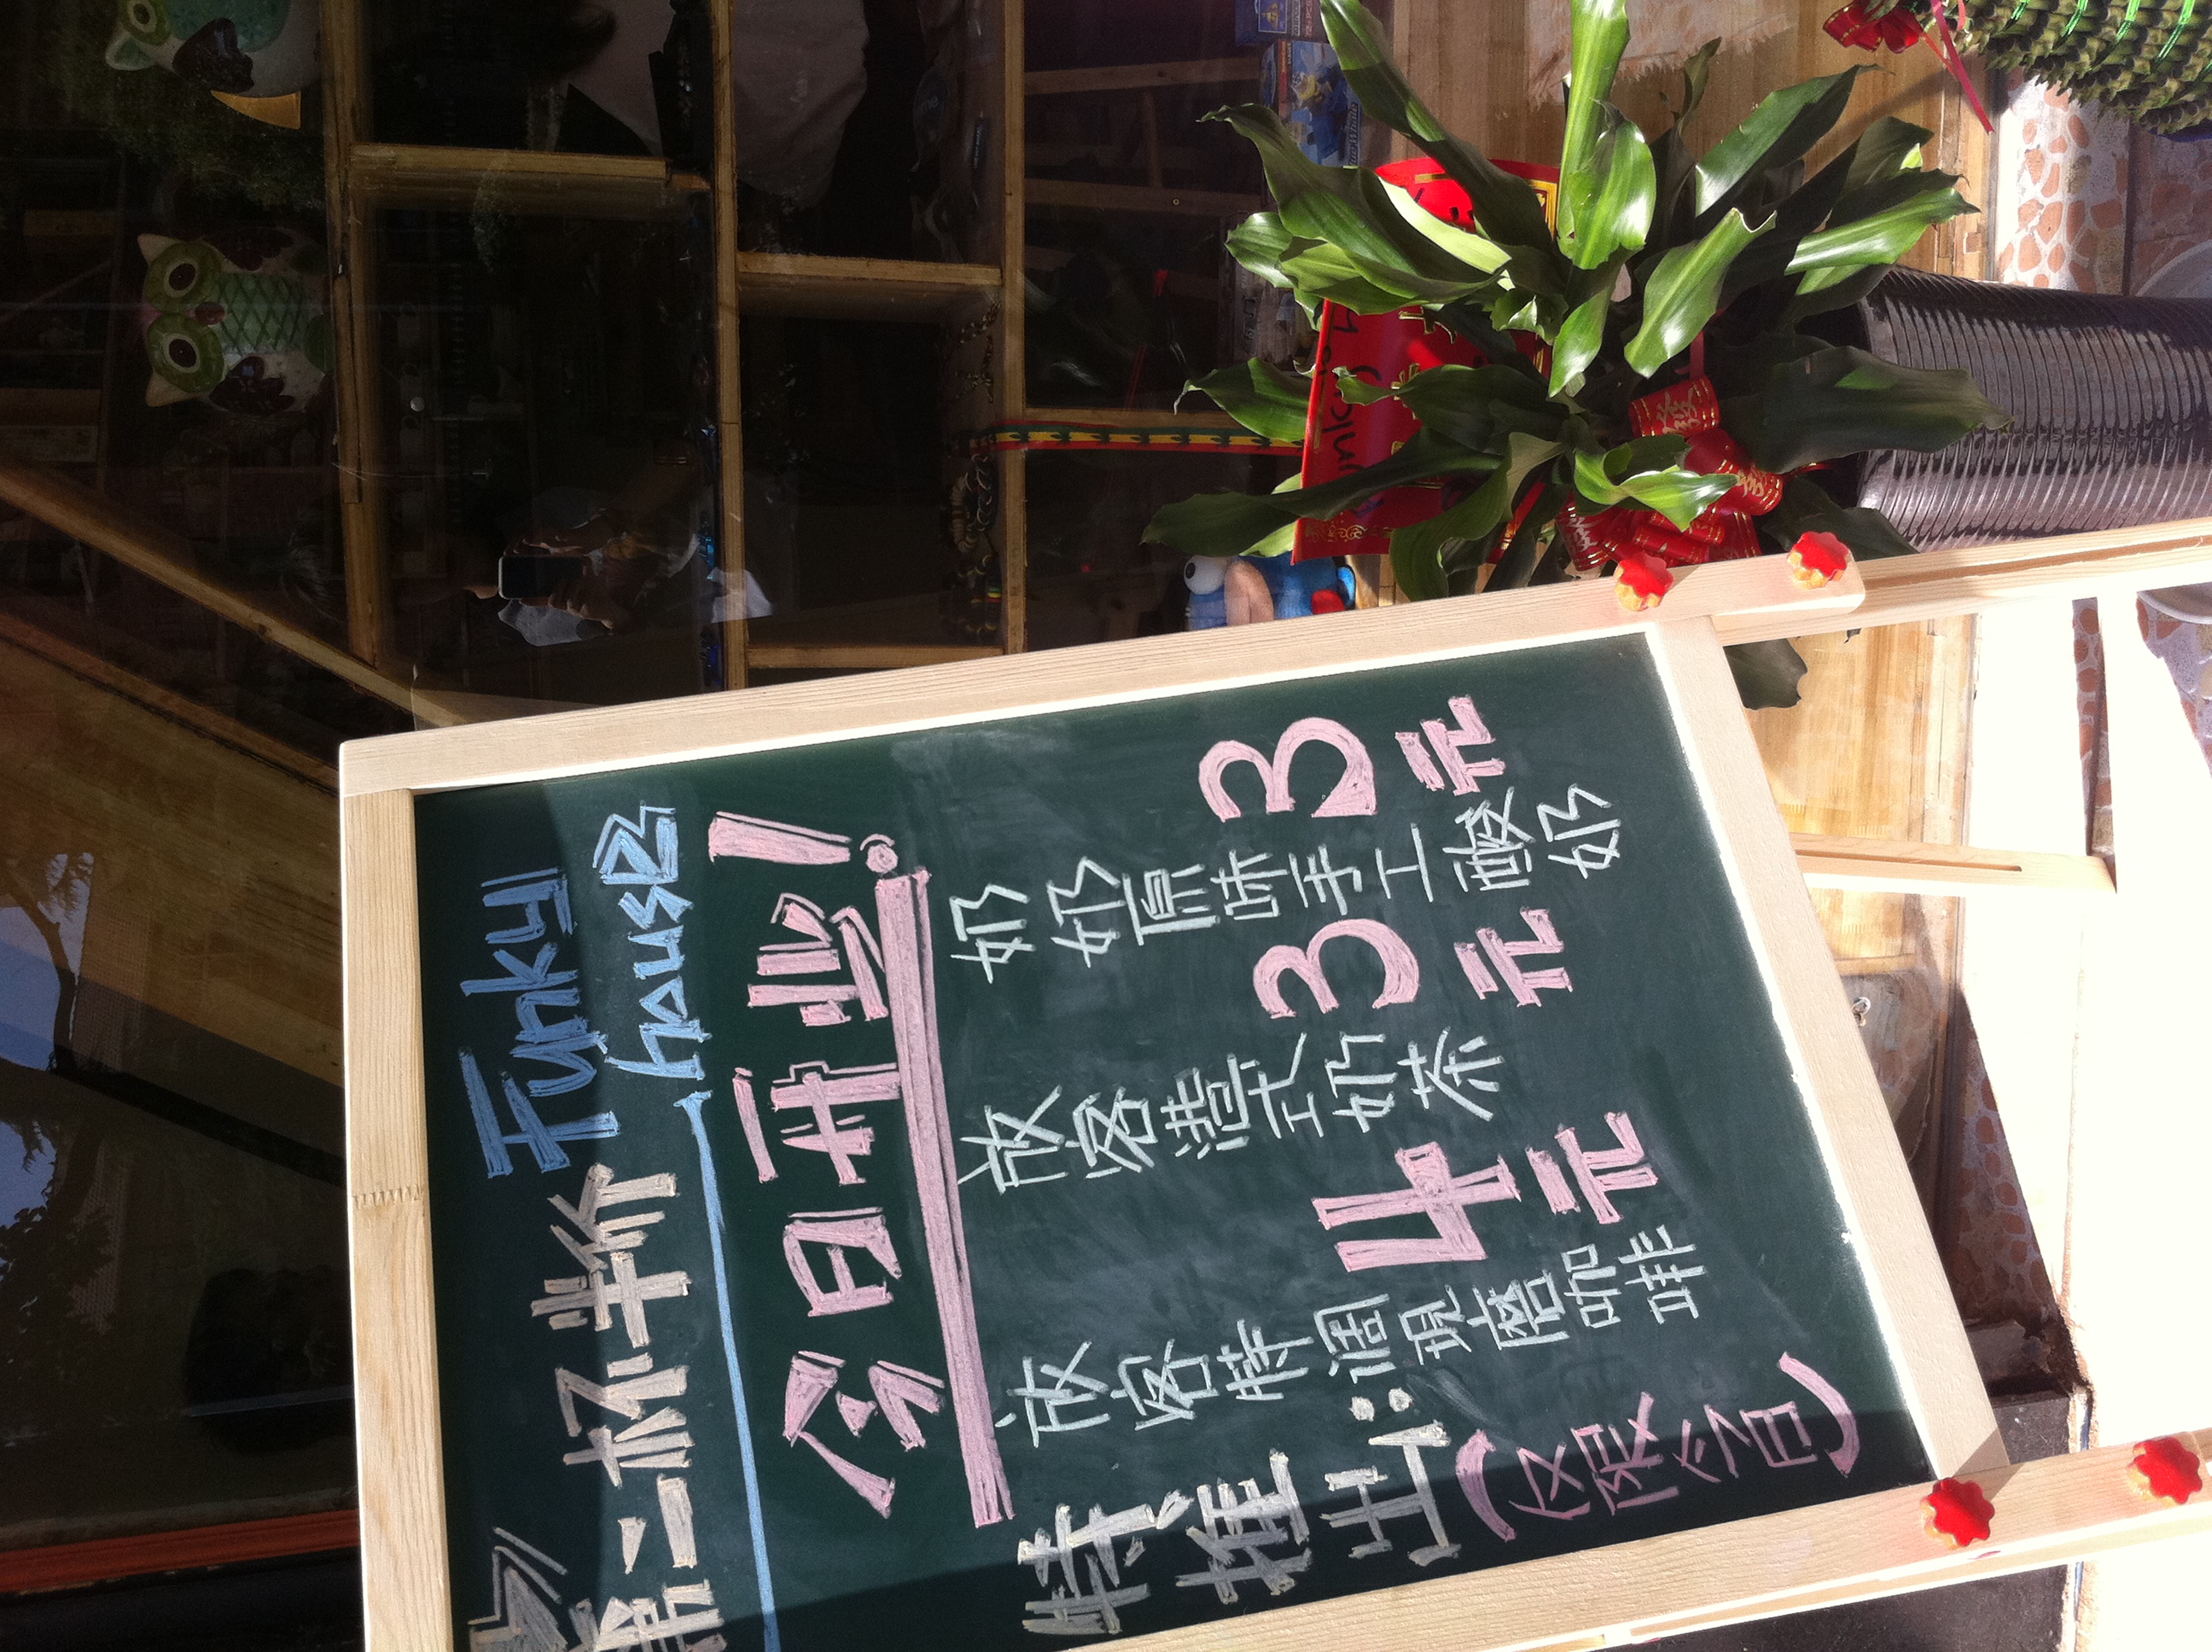 第二杯半价
Funky
house
今日开业!
特推出:
(仅限今日)
放客特调现磨咖啡
4元
放客港式奶茶
3元
奶奶原味手工酸奶
3元